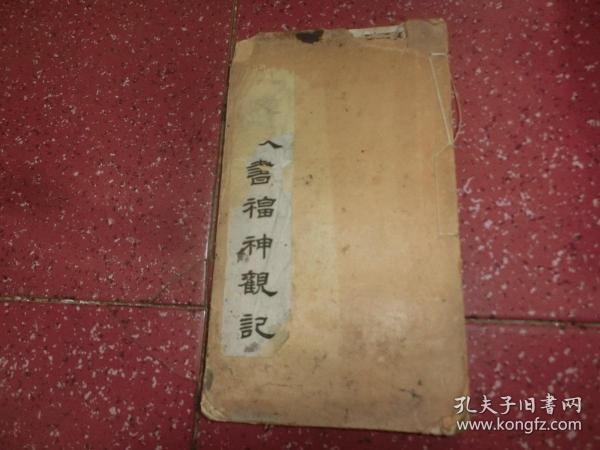 人書福神觀記
孔夫子旧書网
www.kongfz.com